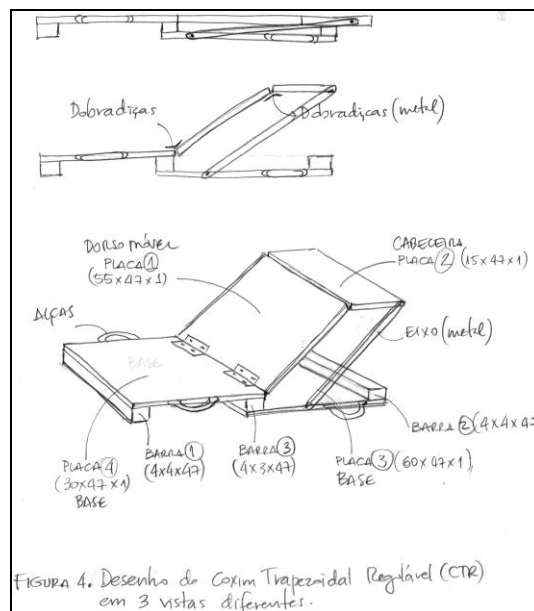 Dobradiças
Dobradiças (metal)
DORSO MÓVEL
PLACA 1
(55x47x1)
CABECEIRA
PLACA 2 (15x47x1)
ALÇAS
EIXO (metal)
BASE
BARRA 2 (4x4x47
PLACA 4
(30x47x1)
BASE
BARRA 1
(4x4x47)
BARRA 3
(4x3x47)
PLACA 3 (60x47x1)
BASE
FIGURA 4. Desenho do Coxim Trapezoidal Regulável (CTR)
em 3 vistas diferentes.